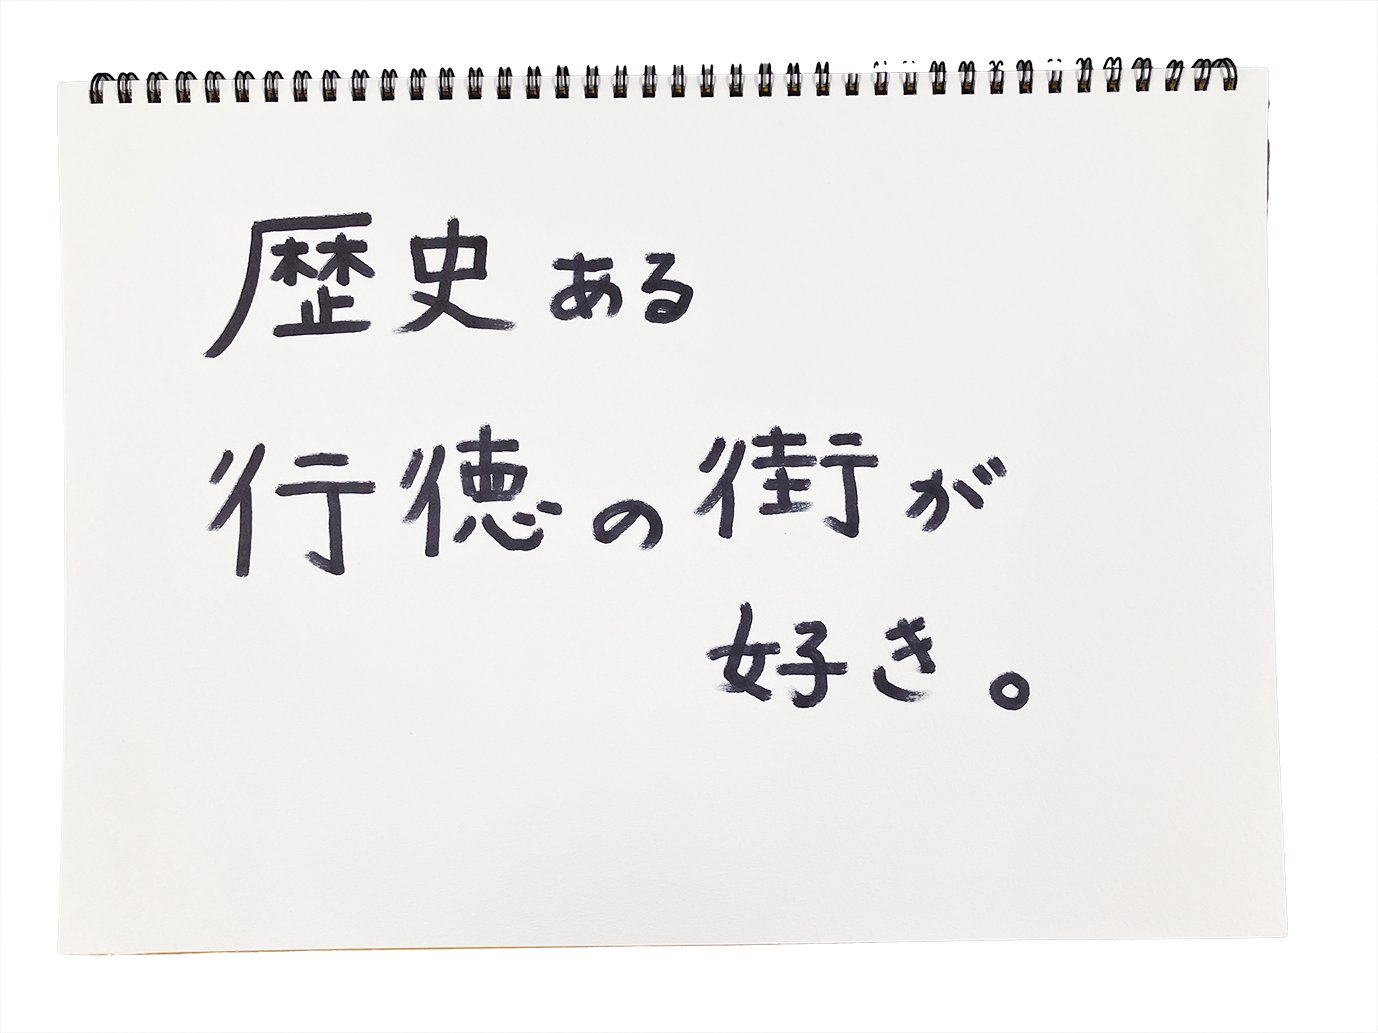 歴史ある
行徳の街が
好き。